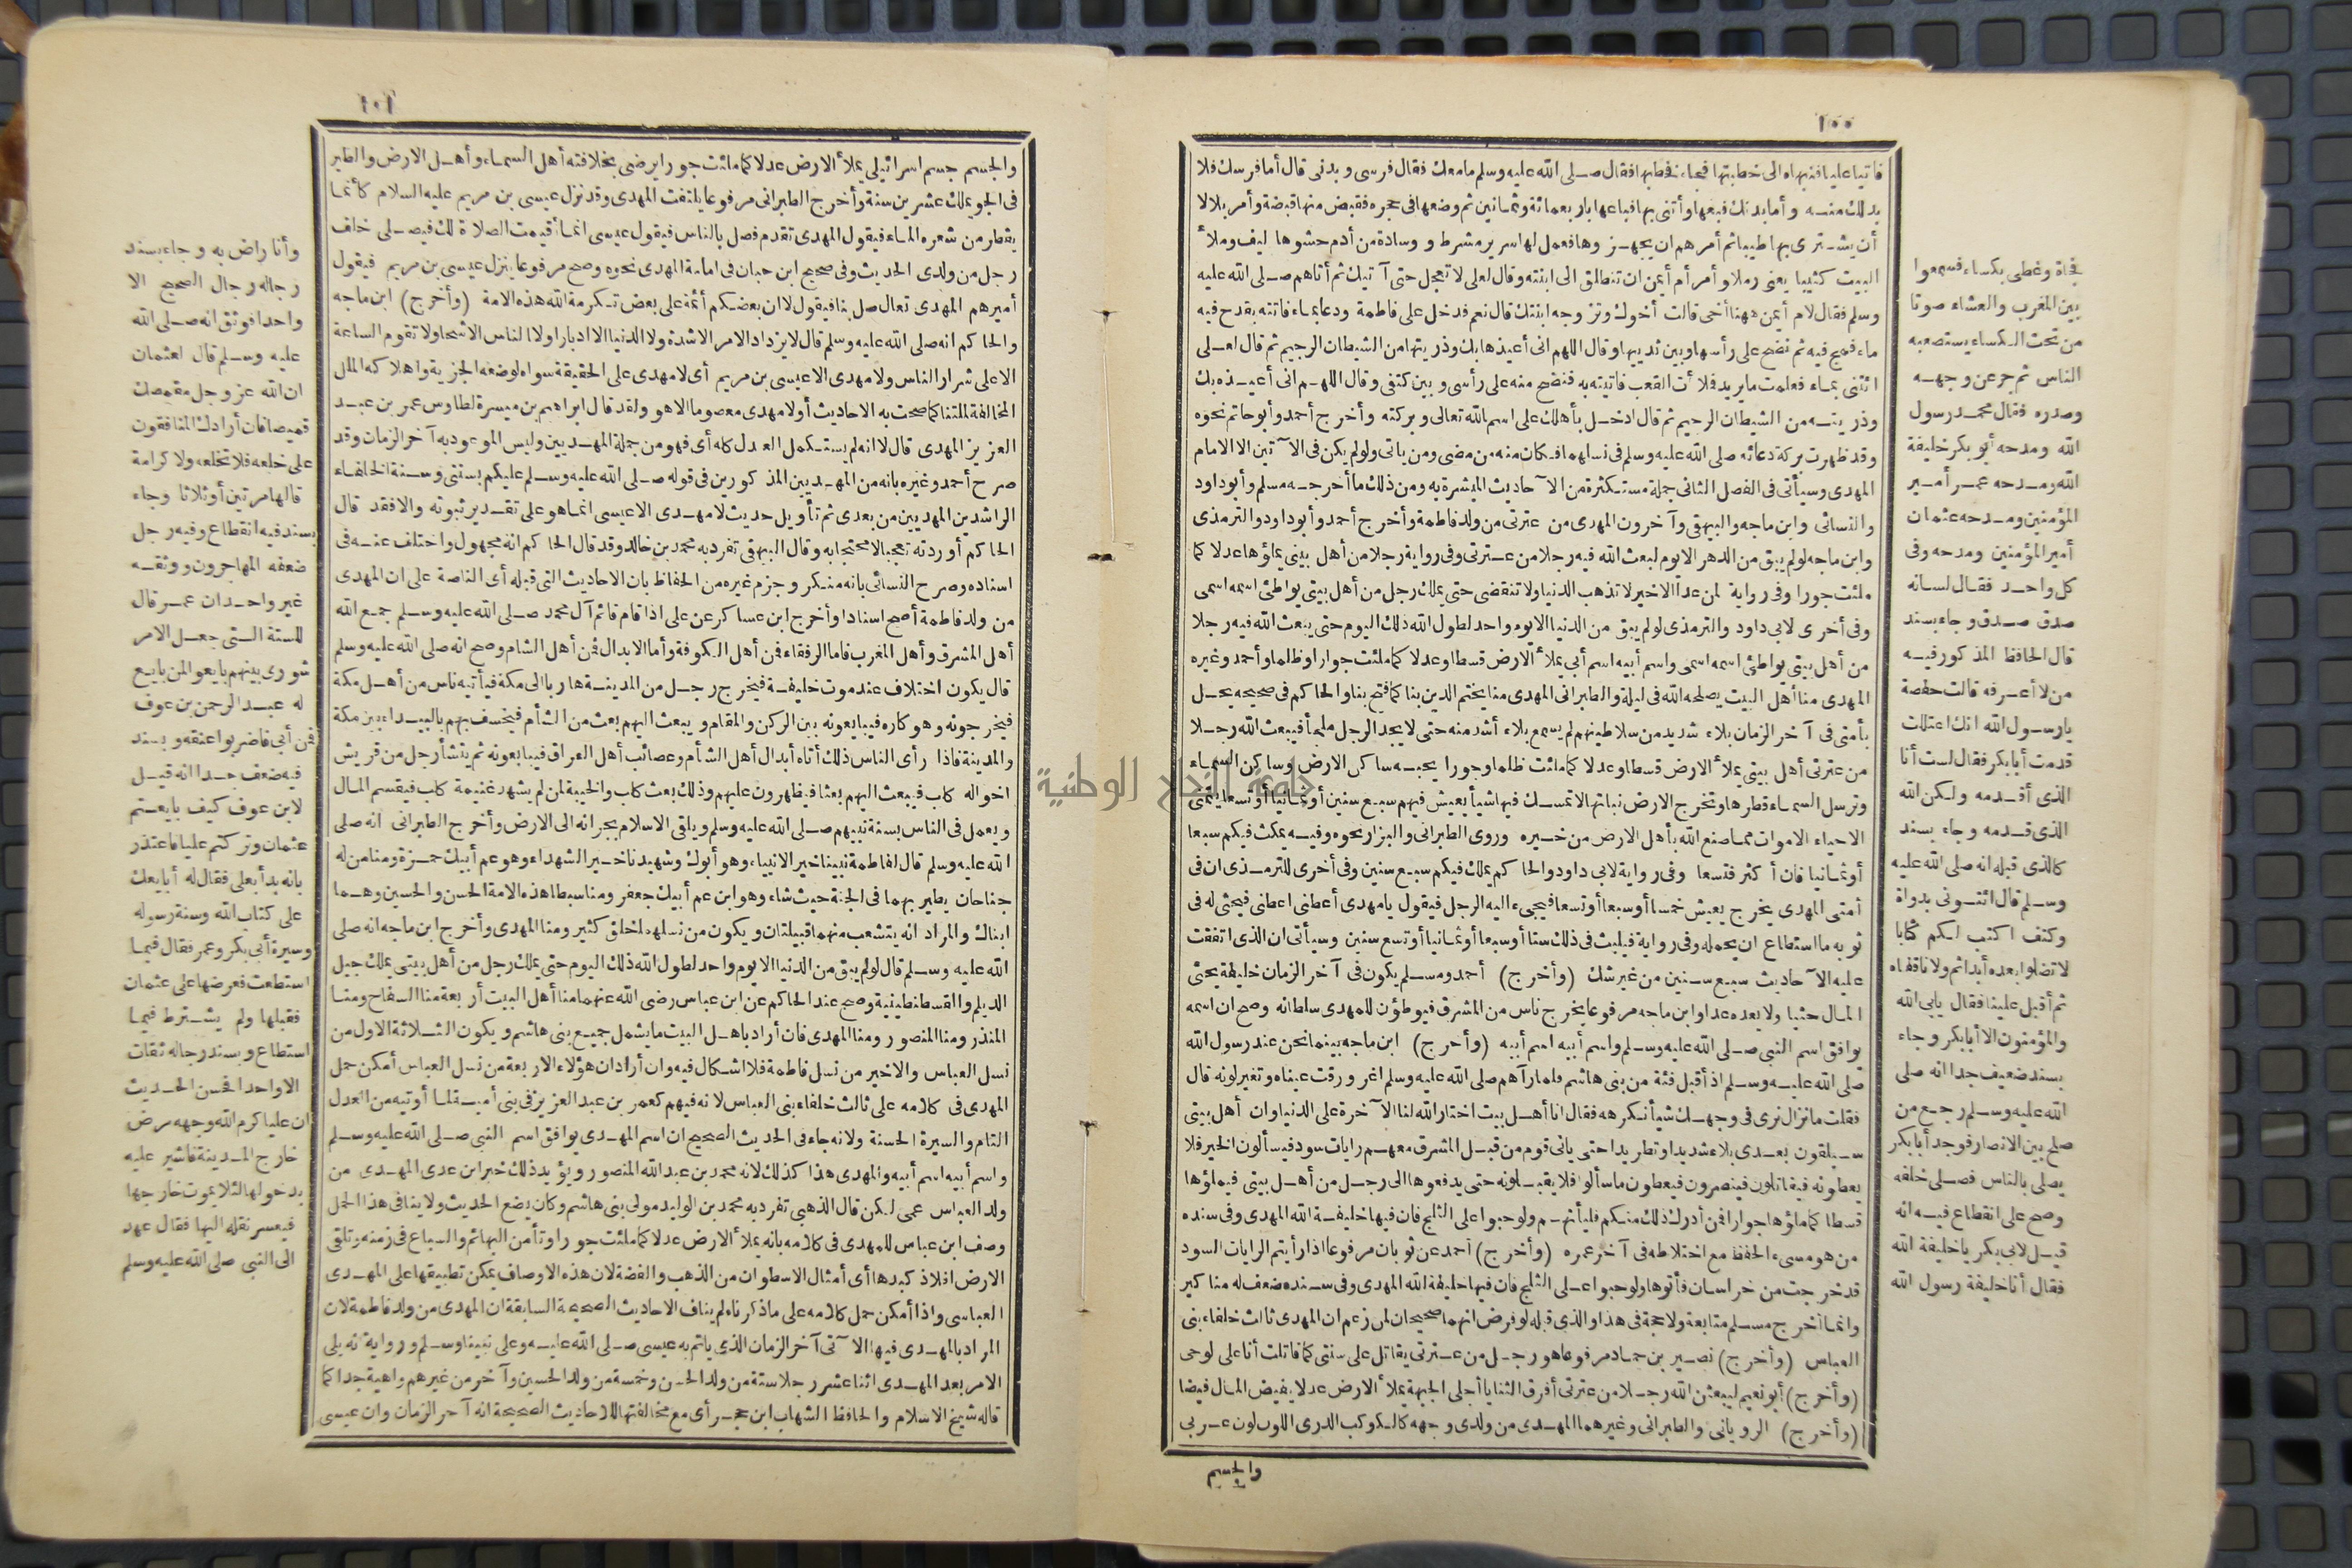 ١٠٠
فاتيا عليا فنبهاه الى خطبتها فجاء فخطبها فقال صلى الله عليه وسلم ما معك فقال فرسى وبدنى قال أما فرسك فلا
بد لك منه وأما بدنك فبعها وأتنى بها فباعها باربعمائة وثمانين ثم وضعها فى حجره فقبض منها قبضة وأمر بلالا
أن يشترى بها طيبا ثم أمرهم ان يجهزوها فعمل لها سرير مشرط و وسادة من أدم حشوها ليف وملأ
البيت كثيبا يعنى رملا وأمر أم أيمن ان تنطلق الى ابنته وقال لعلى لا تعجل حتى آتيك ثم أتاهم صلى الله عليه
وسلم فقال لام أيمن ههنا أخى قالت أخوك وتزوجه ابنتك قال نعم فدخل على فاطمة ودعا بماء فاتته بقدح فيه
ماء فمج فيه ثم نضح على رأسها وبين ثدييها وقال اللهم انى أعيذها بك وذريتها من الشيطان الرجيم ثم قال لعلى
ائتنى بماء فعلمت ما يريد فملأت القعب فاتيته به فنضح منه على رأسى وبين كتفى وقال اللهم انى أعيذه بك
وذريته من الشيطان الرجيم ثم قال ادخل بأهلك على اسم الله تعالى وبركته وأخرج أحمد وأبو حاتم نحوه
وقد ظهرت بركة دعائه صلى الله عليه وسلم فى نسلهما فكان منه من مضى ومن ياتى ولو لم يكن فى الآتين الا الامام
المهدى وسيأتى فى الفصل الثانى جملة مستكثرة من الآحاديث المبشرة به ومن ذلك ما أخرجه مسلم وأبو داود
والنسائى وابن ماجه والبيهقى وآخرون المهدى من عترتى من ولد فاطمة وأخرج أحمد وأبو داود والترمذى
وابن ماجه لو لم يبق من الدهر الا يوم لبعث الله فيه رجلا من عترتى وفى رواية رجلا من أهل بيتى يملؤها عدلا كما
ملئت جورا وفى رواية لمن عدا الاخير لا تذهب الدنيا ولا تنقضى حتى يملك رجل من أهل بيتى يواطئ اسمه اسمى
وفى أخرى لابى داود والترمذى لو لم يبق من الدنيا الا يوم واحد لطول الله ذلك اليوم حتى يبعث الله فيه رجلا
من أهل بيتى يواطئ اسمه اسمى واسم أبيه اسم أبى يملأ الارض قسطا وعدلا كما ملئت جوارا وظلما وأحمد وغيره
المهدى منا أهل البيت يصلحه الله فى ليلة والطبرانى المهدى منا يختم الدين بنا كما فتح بنا والحاكم فى صحيحه يحل
بأمتى فى آخر الزمان بلاء شديد من سلاطينهم لم يسمع بلاء أشد منه حتى لا يجد الرجل ملجأ فيبعث الله رجلا
من عترتى أهل بيتى يملأ الارض قسطا وعدلا كما ملئت ظلما وجورا يحبه ساكن الارض وساكن السماء
وترسل السماء قطرها وتخرج الارض نباتها لا تمسك فيها شيأ يعيش فيهم سبع سنين أو ثمانيا أو تسعا يتمنى
الاحياء الاموات مما صنع الله بأهل الارض من خيره وروى الطبرانى والبزار نحوه وفيه يمكث فيكم سبعا
أو ثمانيا فان أكثر فتسعا وفى رواية لابى داود والحاكم يملك فيكم سبع سنين وفى أخرى للترمذى ان فى
أمتى المهدى يخرج يعيش خمسا أو سبعا أو تسعا فيجىء اليه الرجل فيقول يا مهدى أعطنى اعطنى فيحثى له فى
ثوبه ما استطاع ان يحمله وفى رواية فيلبث فى ذلك ستا أو سبعا أو ثمانيا أو تسع سنين وسيأتى ان الذى اتفقت
عليه الآحاديث سبع سنين من غير شك (وأخرج) أحمد ومسلم يكون فى آخر الزمان خليفة يحثى
المال حثيا ولا يعده عدا وابن ماجه مرفوعا يخرج ناس من المشرق فيوطؤن للمهدى سلطانه وصح ان اسمه
يوافق اسم النبى صلى الله عليه وسلم واسم أبيه اسم أبيه (وأخرج) ابن ماجه بينما نحن عند رسول الله
صلى الله عليه وسلم اذ أقبل فئة من بنى هاشم فلما رآهم صلى الله عليه وسلم اغرورقت عيناه وتغير لونه قال
فقلت ما نزال نرى فى وجهك شيأ نكرهه فقال انا أهل بيت اختار الله لنا الآخرة على الدنيا وان أهل بيتى
سيلقون بعدى بلاء شديدا وتطريدا حتى يأتى قوم من قبل المشرق معهم رايات سود فيسألون الخير فلا
يعطونه فيقاتلون فينصرون فيعطون ما سألوا فلا يقبلونه حتى يدفعوها الى رجل من أهل بيتى فيملؤها
قسطا كما ملؤها جوارا فمن أدرك ذلك منكم فليأتهم ولو حبوا على الثلج فان فيها خليفة الله المهدى وفى سنده
من هو سيء الحفظ مع اختلاطه فى آخر عمره (وأخرج) أحمد عن ثوبان مرفوعا اذا رأيتم الرايات السود
قد خرجت من خراسان فأتوها ولو حبوا على الثلج فان فيها خليفة الله المهدى وفى سنده ضعف له مناكير
وانما أخرج مسلم متابعة ولا حجة فى هذا والذى قبله لو فرض انهما صحيحان لمن زعم ان المهدى ثالث خلفاء بنى
العباس (وأخرج) نصير بن حماد مرفوعا هو رجل من عترتى يقاتل على سنتى كما قاتلت أنا على لوحى
(وأخرج) أبو نعيم ليبعثن الله رجلا من عترتى أفرق الثنايا أجلى الجبهة يملأ الارض عدلا يفيض المال فيضا
(وأخرج) الرويانى والطبرانى وغيرهما المهدى من ولدى وجهه كالكوكب الدرى اللون لون عربى
والجسم
فجاة وغطى بكساء فسمعوا
بين المغرب والعشاء صوتا
من تحت الكساء يستصعبه
الناس ثم حر عن وجهه
وصدره فقال محمد رسول
الله ومدحه أبو بكر خليفة
الله ومدحه عمر أمير
المؤمنين ومدحه عثمان
أمير المؤمنين ومدحه وفى
كل واحد فقال لسانه
صدق صدق وجاء بسند
قال الحافظ المذكور فيه
من لا أعرفه قالت حفصة
يا رسول الله انك اعتللت
قدمت أبا بكر فقال لست أنا
الذى أقدمه ولكن الله
الذى قدمه وجاء بسند
كالذى قبله انه صلى الله عليه
وسلم قال ائتونى بدواة
وكتف اكتب لكم كتابا
لا تضلوا بعده أبدا ثم ولانا قفاه
ثم أقبل علينا فقال يابى الله
والمؤمنون الا أبا بكر وجاء
بسند ضعيف جدا انه صلى
الله عليه وسلم رجع من
صلح بين الانصار فوجد أبا بكر
يصلى بالناس فصلى خلفه
وصح على انقطاع فيه انه
قيل لابى بكر يا خليفة الله
فقال أنا خليفة رسول الله
١٠١
والجسم جسم اسرائيلى يملأ الارض عدلا كما ملئت جورا يرضى بخلافته أهل السماء وأهل الارض والطير
فى الجو يملك عشرين سنة وأخرج الطبرانى مرفوعا يلتفت المهدى وقد نزل عيسى بن مريم عليه السلام كأنما
يقطر من شعره الماء فيقول المهدى تقدم فصل بالناس فيقول عيسى انما أقيمت الصلاة لك فيصلى خلف
رجل من ولدى الحديث وفى صحيح ابن حبان فى امامة المهدى نحوه وصح مرفوعا ينزل عيسى بن مريم فيقول
أميرهم المهدى تعال صل بنا فيقول لا ان بعضكم أئمة على بعض تكرمة الله هذه الامة (وأخرج) ابن ماجه
والحاكم انه صلى الله عليه وسلم قال لا يزداد الامر الا شدة ولا الدنيا الا ادبارا ولا الناس الا شحا ولا تقوم الساعة
الا على شرار الناس ولا مهدى الا عيسى بن مريم أى لا مهدى على الحقيقة سواه لوضعه الجزية واهلاكه الملل
المخالفة لملتنا كما صحت به الاحاديث أو لا مهدى معصوما الا هو ولقد قال ابراهيم بن ميسرة لطاوس عمر بن عبد
العزيز المهدى قال لا انه لم يستكمل العدل كله أى فهو من جملة المهديين وليس الموعود به آخر الزمان وقد
صرح أحمد وغيره بانه من المهديين المذكورين فى قوله صلى الله عليه وسلم عليكم بسنتى وسنة الخلفاء
الراشدين المهديين من بعدى ثم تأويل حديث لا مهدى الا عيسى انما هو على تقدير ثبوته والا فقد قال
الحاكم أوردته تعجبا لا محتجا به وقال البيهقى تفرد به محمد بن خالد وقد قال الحاكم انه مجهول واختلف عنه فى
اسناده وصرح النسائى بانه منكر وجزم غيره من الحفاظ بان الاحاديث التى قبله أى الناصة على ان المهدى
من ولد فاطمة أصح اسنادا وأخرج ابن عساكر عن على اذا قام قائم آل محمد صلى الله عليه وسلم جمع الله
أهل المشرق وأهل المغرب فاما الرفقاء فمن أهل الكوفة وأما الابدال فمن أهل الشام وصح انه صلى الله عليه وسلم
قال يكون اختلاف عند موت خليفة فيخرج رجل من المدينة هاربا الى مكة فيأتيه ناس من أهل مكة
فيخرجونه وهو كاره فيبايعونه بين الركن والمقام ويبعث اليهم بعث من الشأم فيخسف بهم بالبيداء بين مكة
والمدينة فاذا رأى الناس ذلك أتاه أبدال أهل الشأم وعصائب أهل العراق فيبايعونه ثم ينشأ رجل من قريش
اخواله كلب فيبعث اليهم بعثا فيظهرون عليهم وذلك بعث كلب والخيبة لمن لم يشهد غنيمة كلب فيقسم المال
ويعمل فى الناس بسنة نبيهم صلى الله عليه وسلم ويلقى الاسلام بجرانه الى الارض وأخرج الطبرانى انه صلى
الله عليه وسلم قال لفاطمة نبينا خير الانبياء وهو أبوك وشهيدنا خير الشهداء وهو عم أبيك حمزة ومنا من له
جناحان يطير بهما فى الجنة حيث شاء وهو ابن عم أبيك جعفر ومنا سبطا هذه الامة الحسن والحسين وهما
ابناك والمراد انه يتشعب منهما قبيلتان ويكون من نسلهما خلق كثير ومنا المهدى وأخرج ابن ماجه انه صلى
الله عليه وسلم قال لو لم يبق من الدنيا الا يوم واحد لطول الله ذلك اليوم حتى يملك رجل من أهل بيتى يملك جبل
الديلم والقسطنطينية وصح عند الحاكم عن ابن عباس رضى الله عنهما منا أهل البيت أربعة منا السفاح ومنا
المنذر ومنا المنصور ومنا المهدى فان أراد باهل البيت ما يشمل جميع بنى هاشم ويكون الثلاثة الاول من
نسل العباس والاخير من نسل فاطمة فلا اشكال فيه وان أراد ان هؤلاء الاربعة من نسل العباس أمكن حمل
المهدى فى كلامه على ثالث خلفاء بنى العباس لانه فيهم كعمر بن عبد العزيز فى بنى أمية لما أوتيه من العدل
التام والسيرة الحسنة ولانه جاء فى الحديث الصحيح ان اسم المهدى يوافق اسم النبى صلى الله عليه وسلم
واسم أبيه اسم أبيه والمهدى هذا كذلك لانه محمد بن عبد الله المنصور ويؤيد ذلك خبر ابن عدى المهدى من
ولد العباس عمى لكن قال الذهبى تفرد به محمد بن الوليد مولى بنى هاشم وكان يضع الحديث ولا ينافى هذا الحمل
وصف ابن عباس للمهدى فى كلامه بانه يملأ الارض عدلا كما ملئت جورا وتأمن البهائم والسباع فى زمنه وتلقى
الارض افلاذ كبدها أى أمثال الاسطوان من الذهب والفضة لان هذه الاوصاف يمكن تطبيقها على المهدى
العباسى واذا أمكن حمل كلامه على ما ذكرناه لم يناف الاحاديث الصحيحة السابقة ان المهدى من ولد فاطمة لان
المراد بالمهدى فيها الآتى آخر الزمان الذى ياتم به عيسى صلى الله عليه وعلى نبينا وسلم ورواية انه يلى
الامر بعد المهدى اثنا عشر رجلا ستة من ولد الحسن وخمسة من ولد الحسين وآخر من غيرهم واهية جدا كما
قاله شيخ الاسلام والحافظ الشهاب ابن حجر أى مع مخالفتها للاحاديث الصحيحة انه آخر الزمان وان عيسى
وأنا راض به وجاء بسند
رجاله رجال الصحيح الا
واحدا فوثق انه صلى الله
عليه وسلم قال لعثمان
ان الله عز وجل مقمصك
قميصا فان أرادك المنافقون
على خلعه فلا تخلعه ولا كرامة
قالها مرتين أو ثلاثا وجاء
بسند فيه انقطاع وفيه رجل
ضعفه المهاجرون ووثقه
غير واحد ان عمر قال
للستة التى جعل الامر
شورى بينهم بايعوا لمن بايع
له عبد الرحمن بن عوف
فمن أبى فاضربوا عنقه وبسند
فيه ضعف جدا انه قيل
لابن عوف كيف بايعتم
عثمان وتركتم عليا فاعتذر
بانه بدأ بعلى فقال له أبايعك
على كتاب الله وسنة رسوله
وسيرة أبى بكر وعمر فقال فيما
استطعت فعرضها على عثمان
فقبلها ولم يشترط فيما
استطاع وبسند رجاله ثقات
الا واحدا فحسن الحديث
ان عليا كرم الله وجهه مرض
خارج المدينة فاشير عليه
بدخولها لئلا يموت خارجها
فيعسر نقله اليها فقال عهد
الى النبى صلى الله عليه وسلم
جامعة النجاح الوطنية